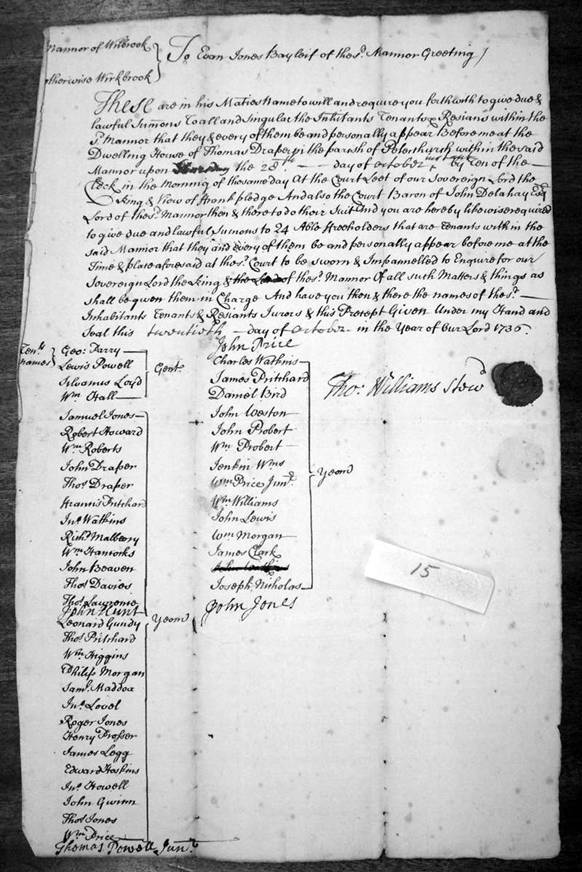 Mannor of Wilbrook
otherwise Wirkbrook
To Evan Jones Bayleif of the sd. Mannor Greeting
These are in his Maties Name to will and require you forthwith to give due &
lawfull Sumons To all and Singular the Inhitants Tenants & Resians within the
sd. Mannor that they & every of them be and personally appear Before me at the
Dwelling House of Thomas Draper in the parish of Peterchurch within the said
Mannor upon the 28th day of October by Ten of the
Clock in the Morning of the same day At the Court Leet of our Sovereign Lord the
King & View of Frankpledge And also the Court Baron of John Delahay Esqr
Lord of the sd. Mannor then & there to do their Suit And you are hereby likewise required
to give due and lawfull Sumons to 24 Able Freeholders that are Tenants within the
said Mannor that they and every of them be and personally appear before me at the
Time & place aforesaid at the sd. Court to be sworn & Impannelled to Enquire for our
Sovereign Lord the King & the Lord of the sd. Mannor Of all such Matters & things as
shall be given them in Charge And have you then & there the names of the sd.
Inhabitants Tenants & Resiants Jurors & this Precept Given Under my Hand and
Seal this twentieth day of October in the Year of Our Lord 1736.
Tents. names
Geo: Parry
Lewis Powell
Silvanus Loyd
Wm. Hall
Gent.
Samuel Jones
Robert Howard
Wm. Roberts
John Draper
Thos. Draper
Francis Pritchard
Jno. Watkins
Richd. Malberry
Wm. Hancocks
John Beaven
Thos. Davies
Thos. Lawrence
John Hunt
Leonard Gundy
Thos. Pritchard
Wm. Higgins
Philip Morgan
Saml. Maddox
Jno. Lovel
Roger Jones
Henry Prosser
James Legg
Edward Hoskins
Jno. Howell
John Gwinn
Thos. Jones
Wm. Price
Thomas Powell Junr.
Yeom
John Price
Charles Watkins
James Pritchard
Daniel Bird
John Weston
John Probert
Wm. Probert
Jenkin Wms
Wm. Price Junr.
Wm. Williams
John Lewis
Wm. Morgan
James Clark
Joseph Nicholas
John Jones
Yeom
Tho: Williams Stewd
15